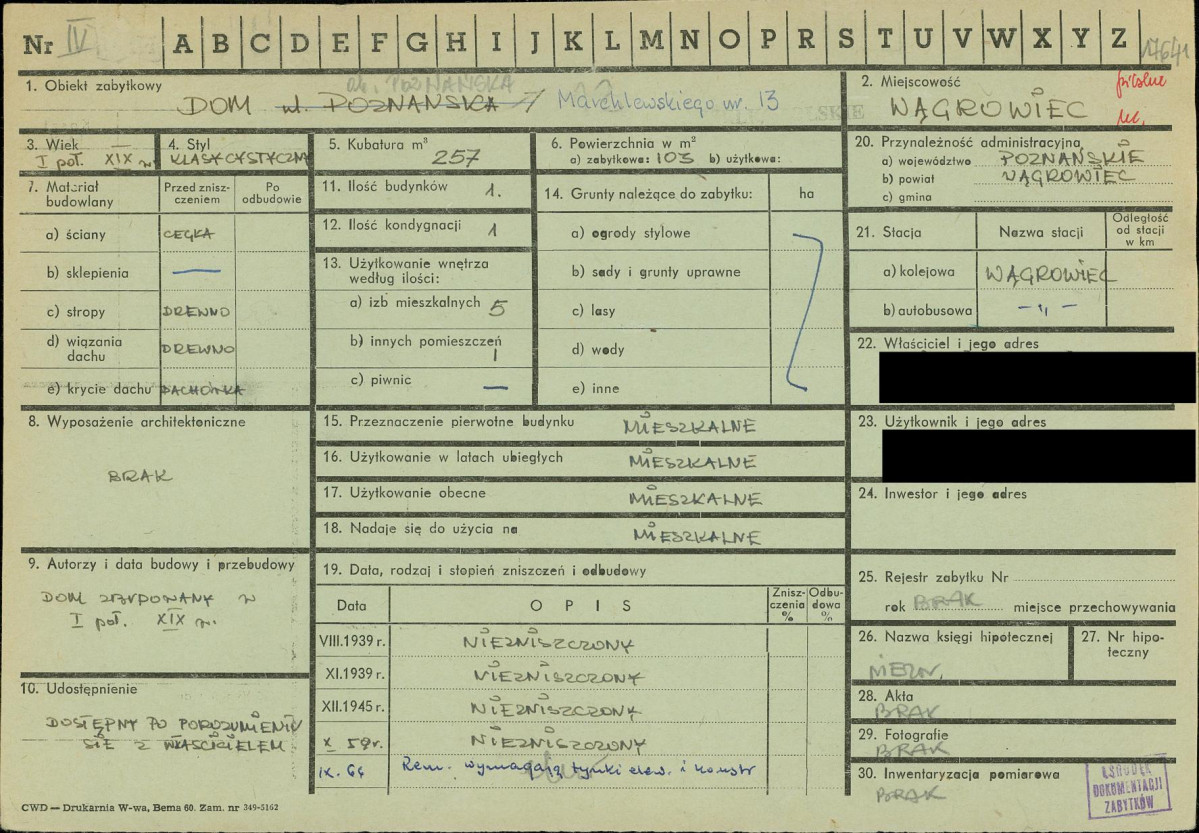 Nr IV A B C D E F G H I J K L M N O P R S T U V W X Y Z
1. Obiekt zabytkowy
ul. POZNAŃSKA
DOM ul. POZNAŃSKA 7/ Marchlewskiego nr. 13
2. Miejscowość
WĄGROWIEC
pilskie
3. Wiek
I poł. XIX w.
4. Styl
KLASYCYSTYCZNY
5. Kubatura m³ 257
6. Powierzchnia w m²
a) zabytkowa: 103 b) użytkowa:
20. Przynależność administracyjna
a) województwo POZNAŃSKIE
b) powiat WĄGROWIEC
c) gmina
7. Materiał budowlany
Przed zniszczeniem
Po odbudowie
a) ściany CEGŁA
b) sklepienia —
c) stropy DREWNO
d) wiązania dachu DREWNO
e) krycie dachu DACHÓWKA
11. Ilość budynków 1.
12. Ilość kondygnacji 1
13. Użytkowanie wnętrza według ilości:
a) izb mieszkalnych 5
b) innych pomieszczeń 1
c) piwnic —
14. Grunty należące do zabytku: ha
a) ogrody stylowe
b) sady i grunty uprawne
c) lasy
d) wody
e) inne
21. Stacja
Nazwa stacji
Odległość od stacji w km
a) kolejowa WĄGROWIEC
b) autobusowa -„-
22. Właściciel i jego adres
23. Użytkownik i jego adres
24. Inwestor i jego adres
8. Wyposażenie architektoniczne
BRAK
15. Przeznaczenie pierwotne budynku MIESZKALNE
16. Użytkowanie w latach ubiegłych MIESZKALNE
17. Użytkowanie obecne MIESZKALNE
18. Nadaje się do użycia na MIESZKALNE
9. Autorzy i data budowy i przebudowy
DOM ZBUDOWANY W
I poł. XIX w.
10. Udostępnienie
DOSTĘPNY PO POROZUMIENIU
SIĘ Z WŁAŚCICIELEM
19. Data, rodzaj i stopień zniszczeń i odbudowy
Data
OPIS
Zniszczenia %
Odbudowa %
VIII.1939 r. NIEZNISZCZONY
XI.1939 r. NIEZNISZCZONY
XII.1945 r. NIEZNISZCZONY
X 59 r. NIEZNISZCZONY
IX. 64 Rem. wymagają tynki elew. i konstr
25. Rejestr zabytku Nr
rok BRAK miejsce przechowywania
26. Nazwa księgi hipotecznej
27. Nr hipoteczny
28. Akta
BRAK
29. Fotografie
BRAK
30. Inwentaryzacja pomiarowa
BRAK
OŚRODEK
DOKUMENTACJI
ZABYTKÓW
CWD — Drukarnia W-wa, Bema 60. Zam. nr 349-5162